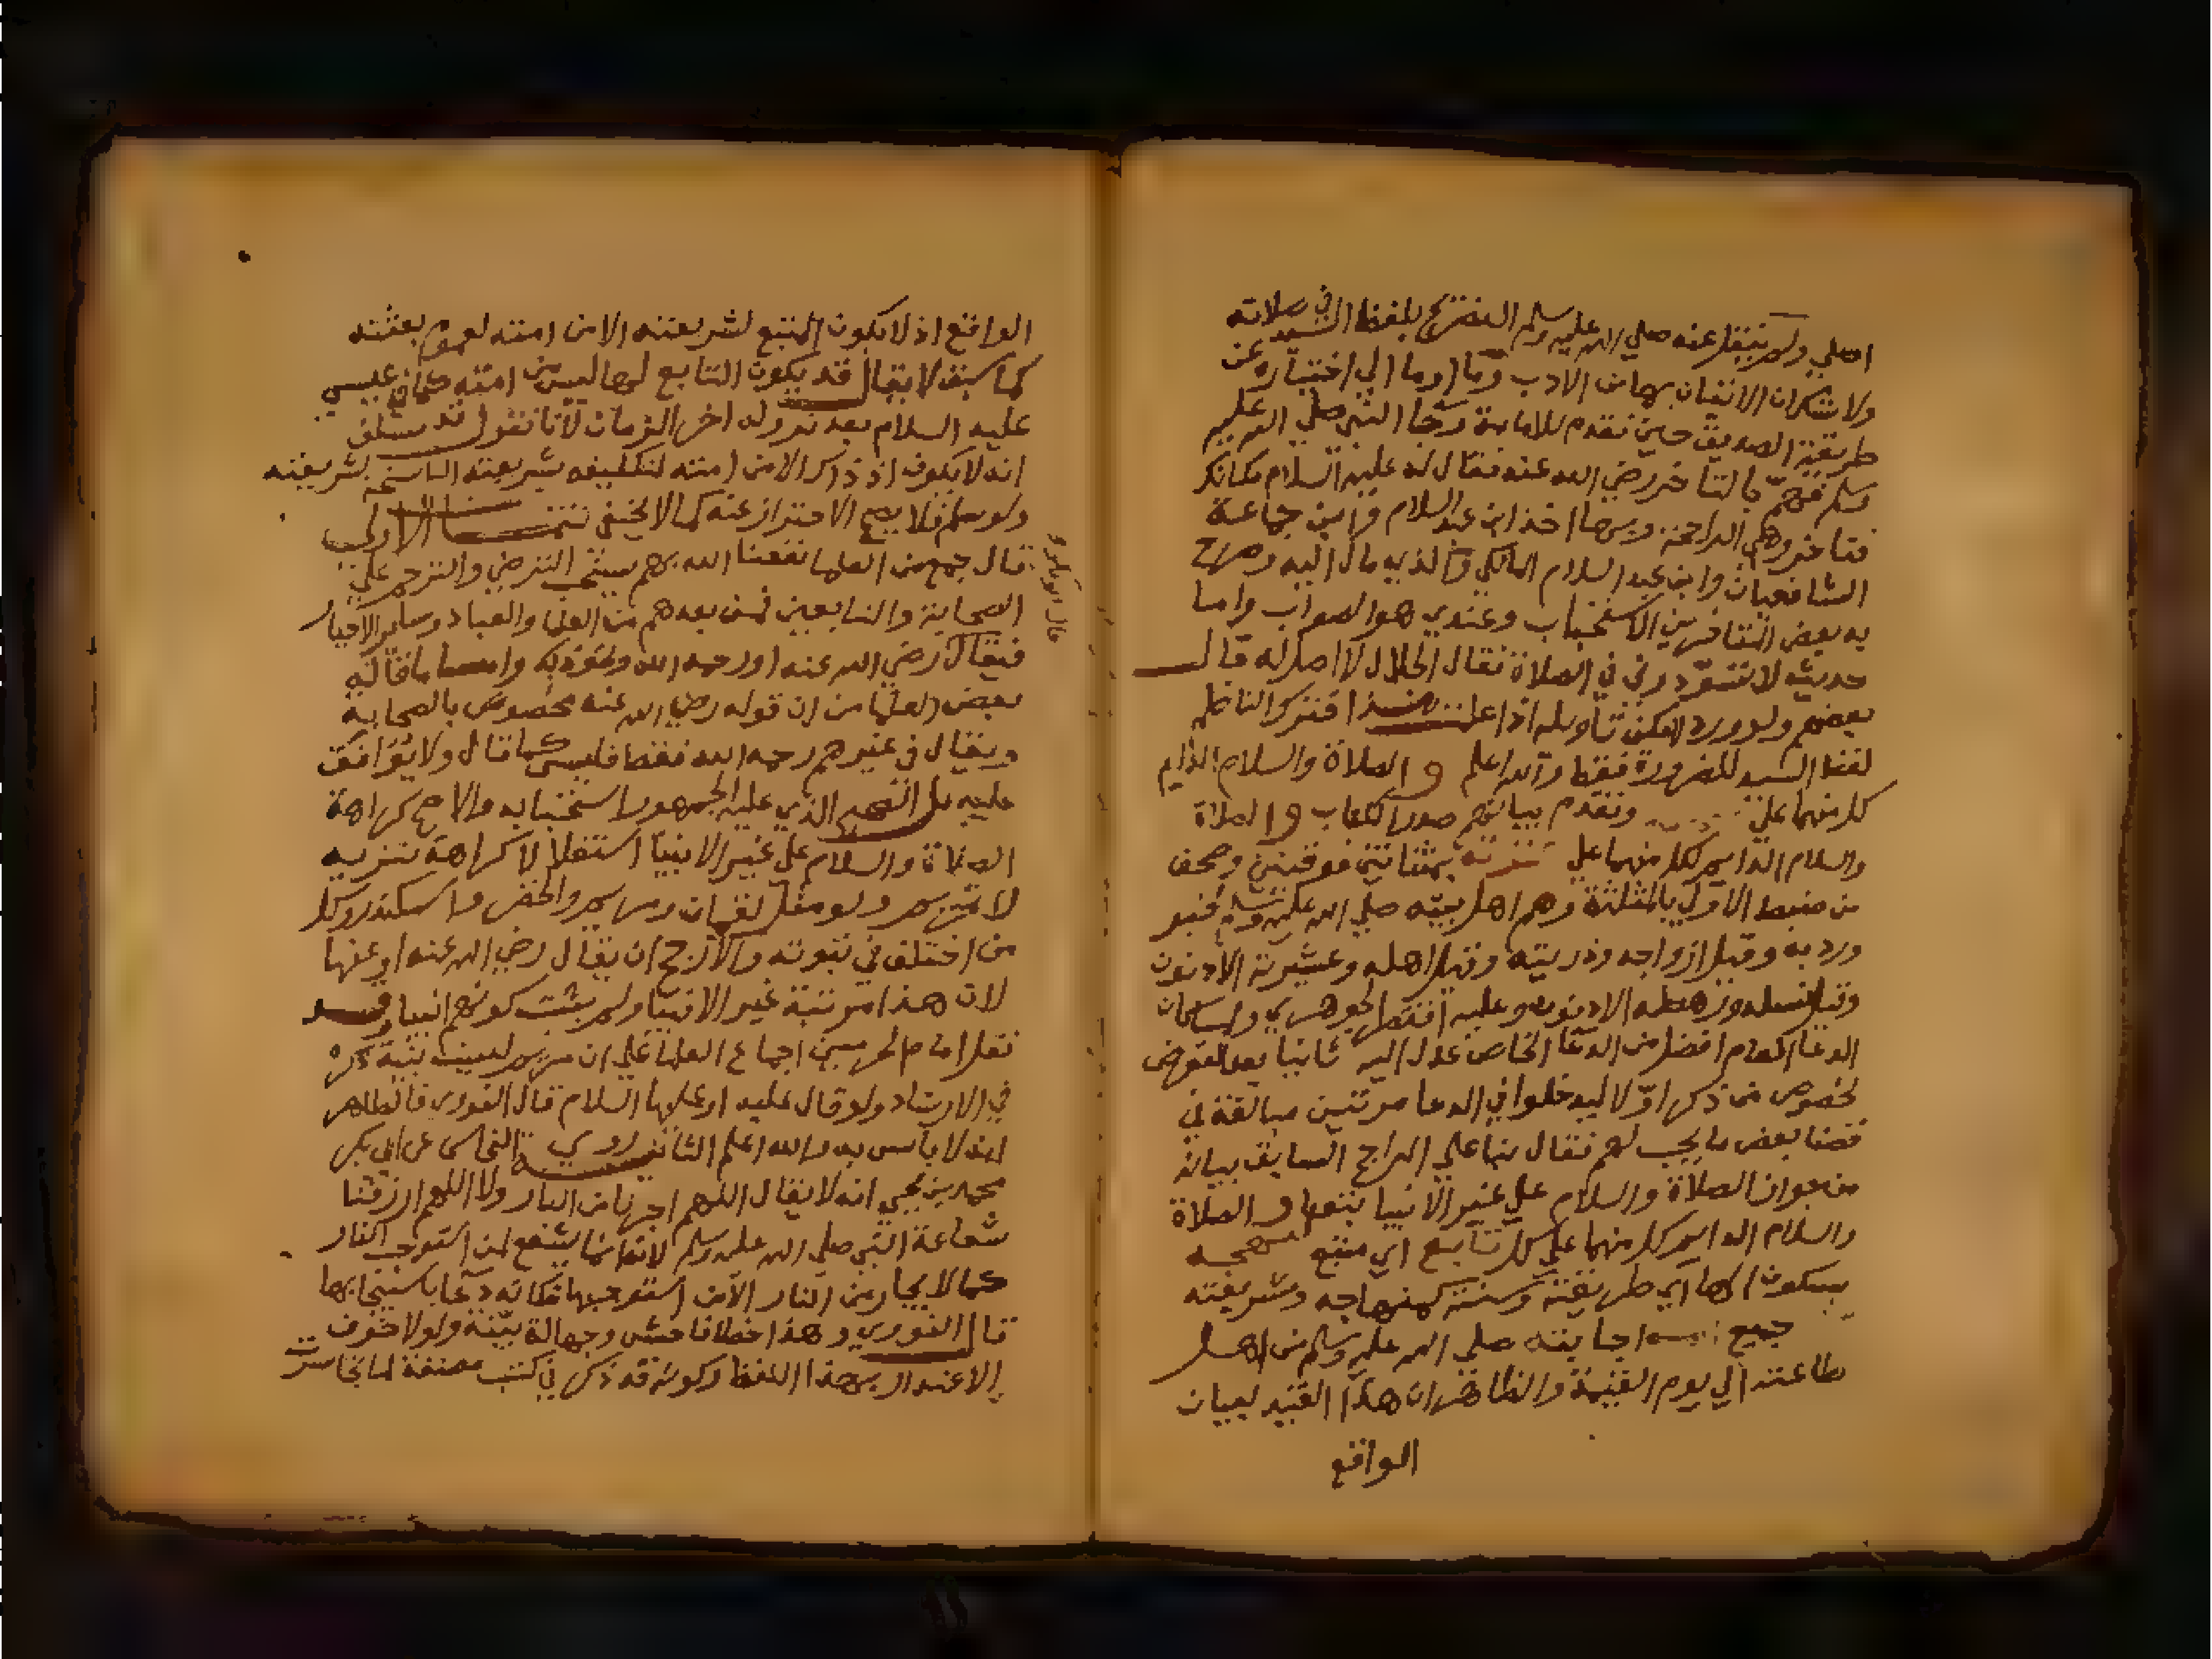 اصلي ولم ينقل عنه صلي الله عليه وسلم التصريح بلفظ السيد في صلاته
ولا شك ان الاتيان بها من الادب وما اوما الي اختياره عن
طريقة الصديق حين تقدم للامامة وجا النبي صلي الله عليه
وسلم فهم بالتاخر رضي الله عنه فقال له عليه السلام مكانك
فتاخر وهي الراجحة وبها اخذ ابن عبد السلام وابن جماعة
الشافعيان وابن عبد السلام المالكي والذي مال اليه وصرح
به بعض المتاخرين الاستحباب وعندي هو الصواب واما
حديث لا تسودوني في الصلاة فقال الجلال لا اصل له قال
بعضهم ولو ورد امكن تاويله اذا علمت هذا فترك الناظم
لفظ السيد للضرورة فقط والله اعلم و الصلاة والسلام الدايم
كل منهما علي وتقدم بيانهم صدر الكتاب و الصلاة
والسلام الدايم كل منهما علي عترته بمثناتين فوقيتين وصحف
من ضبط الاولي بالمثلثة وهم اهل بيته صلي الله عليه وسلم لخبر
ورد به وقيل ازواجه وذريته وقيل اهله وعشيرته الادنون
وقيل نسله ورهطه الادنون وعليه اقتصر الجوهري ولما كان
الدعا العام افضل من الدعا الخاص عدل اليه ثانيا بعد التعرض
لخصوص من ذكر اولا ليدخلوا في الدعا مرتين مبالغة في
قضا بعض ما يجب لهم فقال بنا علي الراجح السابق بيانه
من جواز الصلاة والسلام علي غير الانبيا بتعا و الصلاة
والسلام الدايم كل منهما علي كل تابع اي متبع لنهجه
بسكون الها اي طريقته وسنته كمنهاجه وشريعته
جميع اجابته صلي الله عليه وسلم من اهل
طاعته الي يوم القيمة والظاهر ان هذا القيد لبيان
الواقع
الواقع اذ لا يكون المتبع لشريعته الا من امته لعموم بعثته
كما سبق لا يقال قد يكون التابع لها ليس من امته كما في عيسي
عليه السلام بعد نزوله اخر الزمان لانا نقول قد سلف
انه لا يكون اذ ذاك الا من امته لتكليفه بشريعته الناسخة لشريعته
ولو سلم فلا يصح الاحتراز عنه كما لا يخفي تتمتـــان الاولي
قال جمع من العلما نفعنا الله بهم يستحب الترضي والترحم علي
الصحابة والتابعين فمن بعدهم من العلما والعباد وساير الاخيار
فيقال رضي الله عنه او رحمه الله ونحو ذلك واما ما قاله
بعض العلما من ان قوله رضي الله عنه مخصوص بالصحابة
ويقال في غيرهم رحمه الله فقط فليس كما قال ولا يوافق
عليه بل الصحيح الذي عليه الجمهور استحبابه والاصح كراهة
الصلاة والسلام علي غير الانبيا استقلالا كراهة تنزيه
لا تحريم ولو مثل لقمان ومريم والخضر واسكندر وكل
من اختلف في نبوته والارجح ان يقال رضي الله عنه او عنها
لان هذا مرتبة غير الانبيا ولم يثبت كونهم انبيا وقد
نقل امام الحرمين اجماع العلما علي ان مريم ليست بنبية ذكره
في الارشاد ولو قال عليه او عليها السلام قال النووي فالظاهر
انه لا باس به والله اعلم الثانية روي النحاس عن ابي بكر
محمد بن يحيي انه لا يقال اللهم اجرنا من النار ولا اللهم ارزقنا
شفاعة النبي صلي الله عليه وسلم لانها انما يشفع لمن استوجب النار
كما لا يجار من النار الا من استوجبها فكانه دعا باستيجابها
قال النووي وهذا خطا فاحش وجهالة بينة ولولا خوف
الاغترار بهذا اللفظ وكونه قد ذكر في كتب مصنفة لما تجاسرت